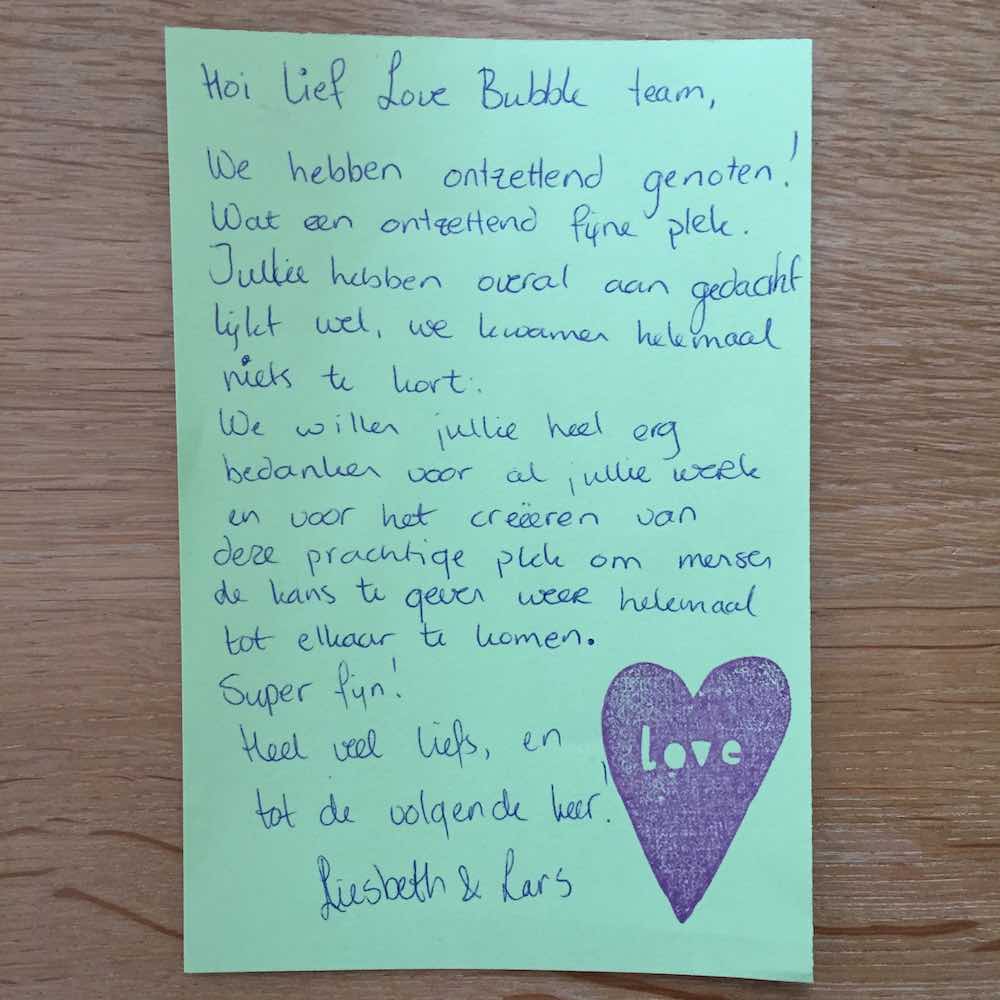 Hoi lief Love Bubble team,
We hebben ontzettend genoten!
Wat een ontzettend fijne plek.
Jullie hebben overal aan gedacht
lijkt wel, we kwamen helemaal
niets te kort.
We willen jullie heel erg
bedanken voor al jullie werk
en voor het creëeren van
deze prachtige plek om mensen
de kans te geven weer helemaal
tot elkaar te komen.
Super fijn!
Heel veel liefs, en
tot de volgende keer!
Liesbeth & Lars
love